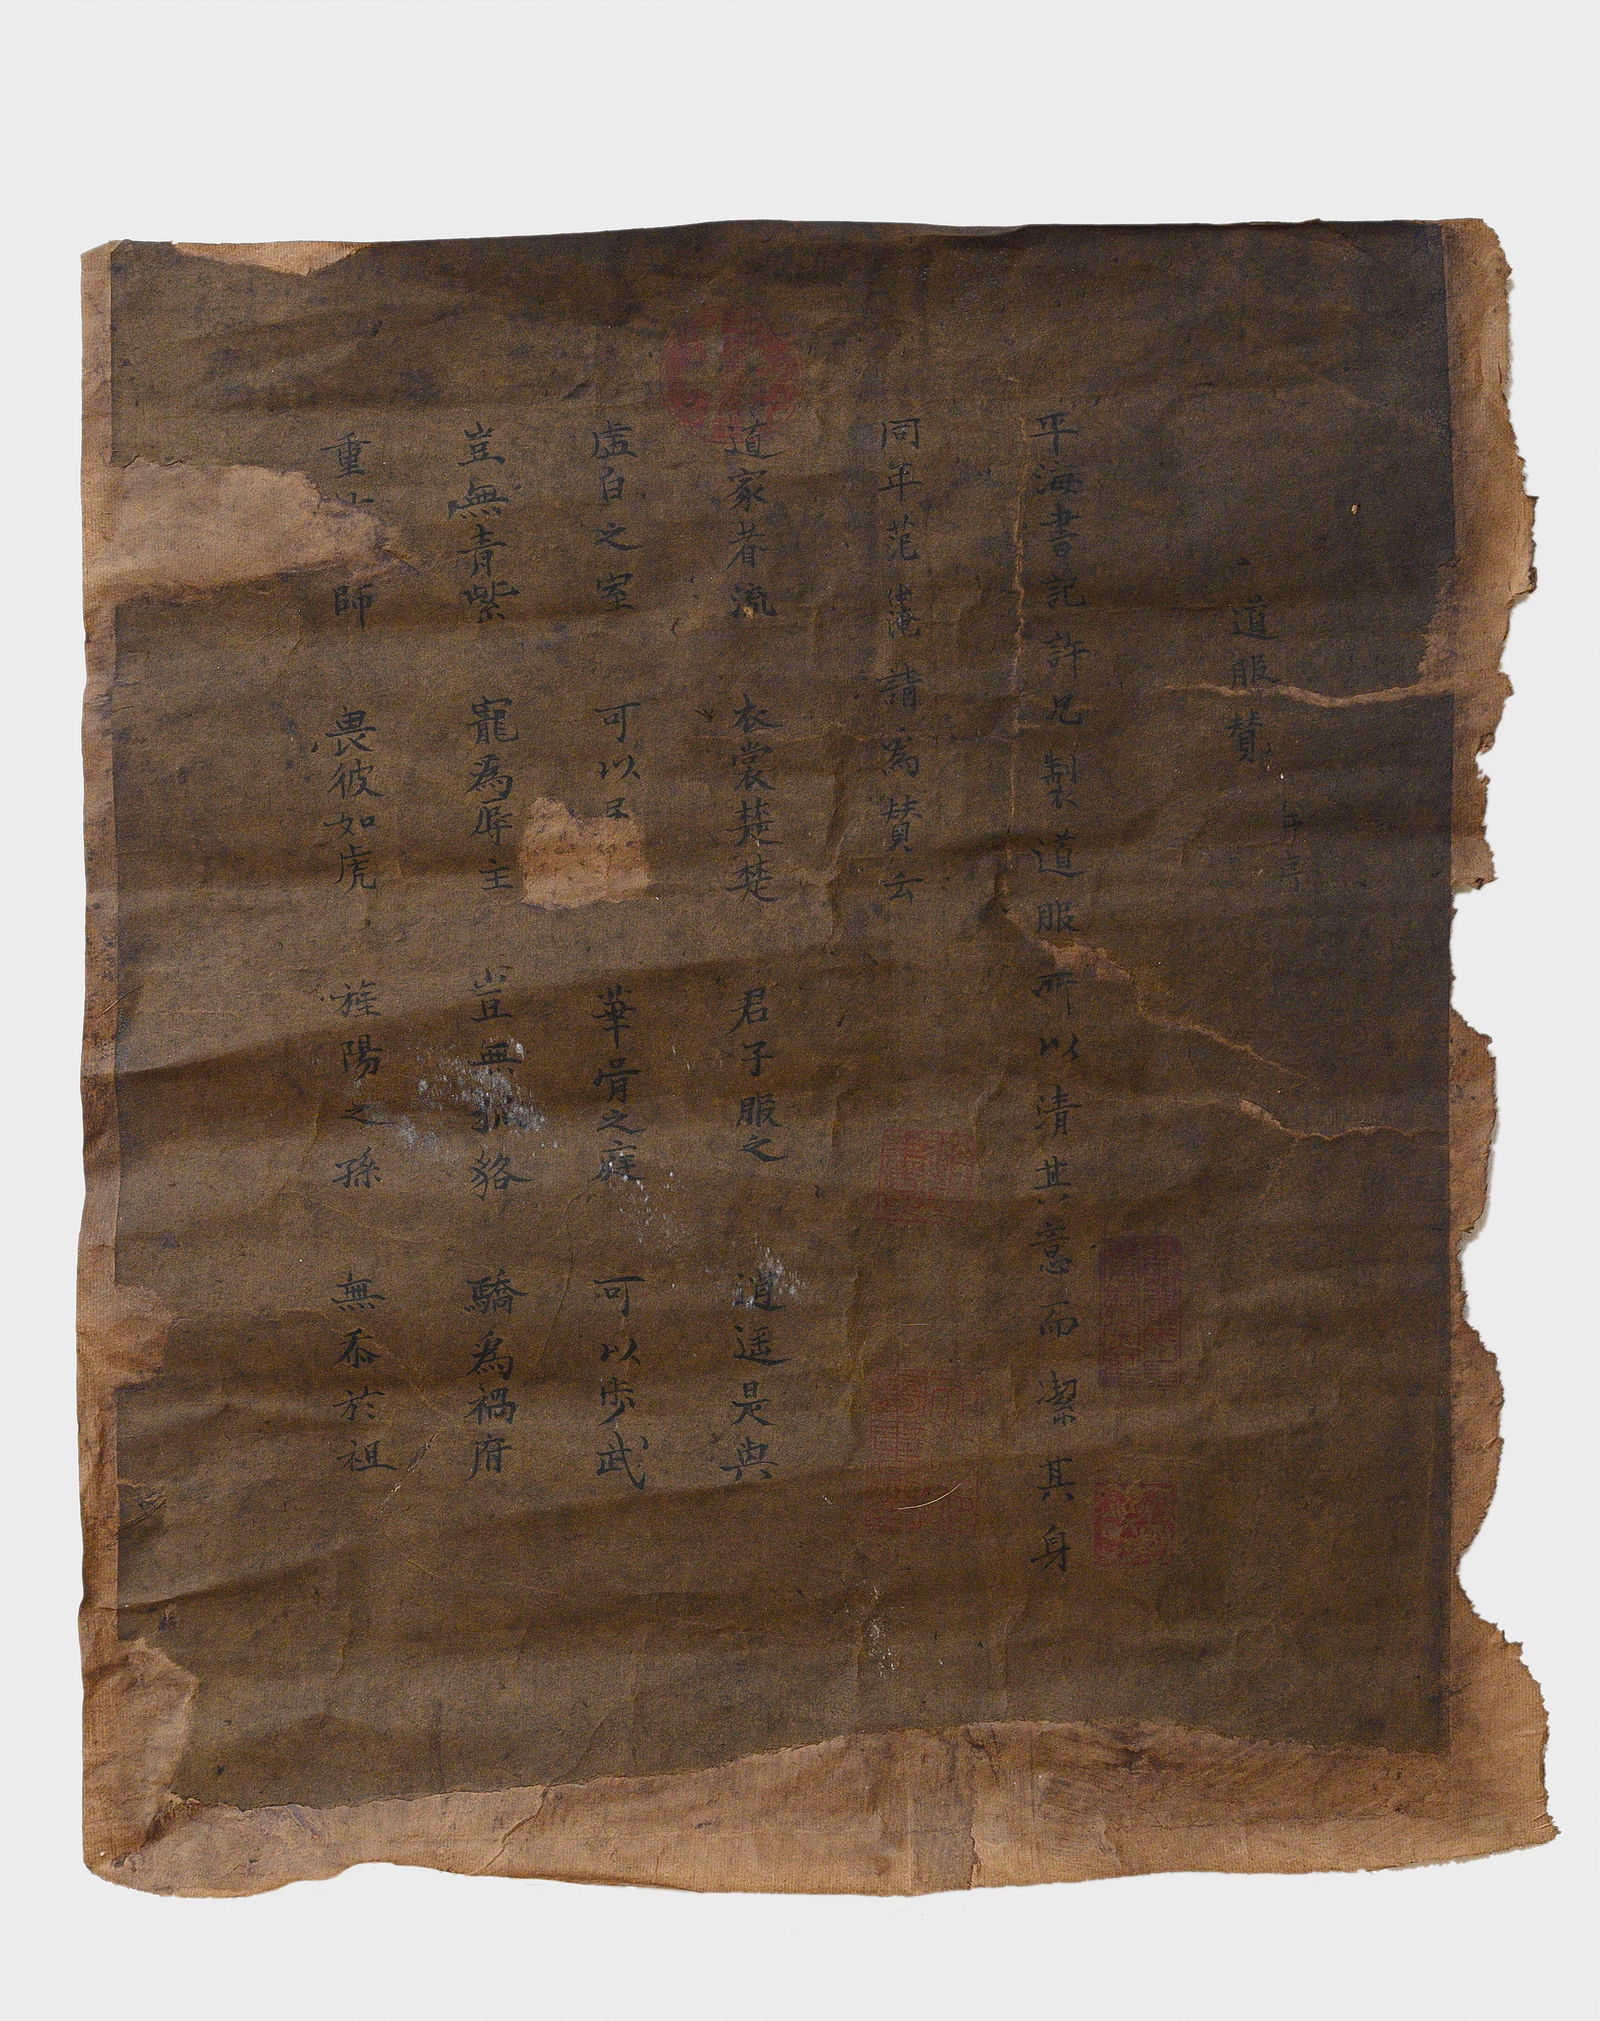 道服贊 并序
平海書記許兄製道服所以清其意而潔其身
同年范仲淹請爲贊云
道家者流 衣裳楚楚 君子服之 逍遥是與
虛白之室 可以 華胥之庭 可以步武
豈無青紫 寵爲辱主 豈無狐貉 驕爲禍府
重師 畏彼如虎 旌陽之孫 無忝於祖